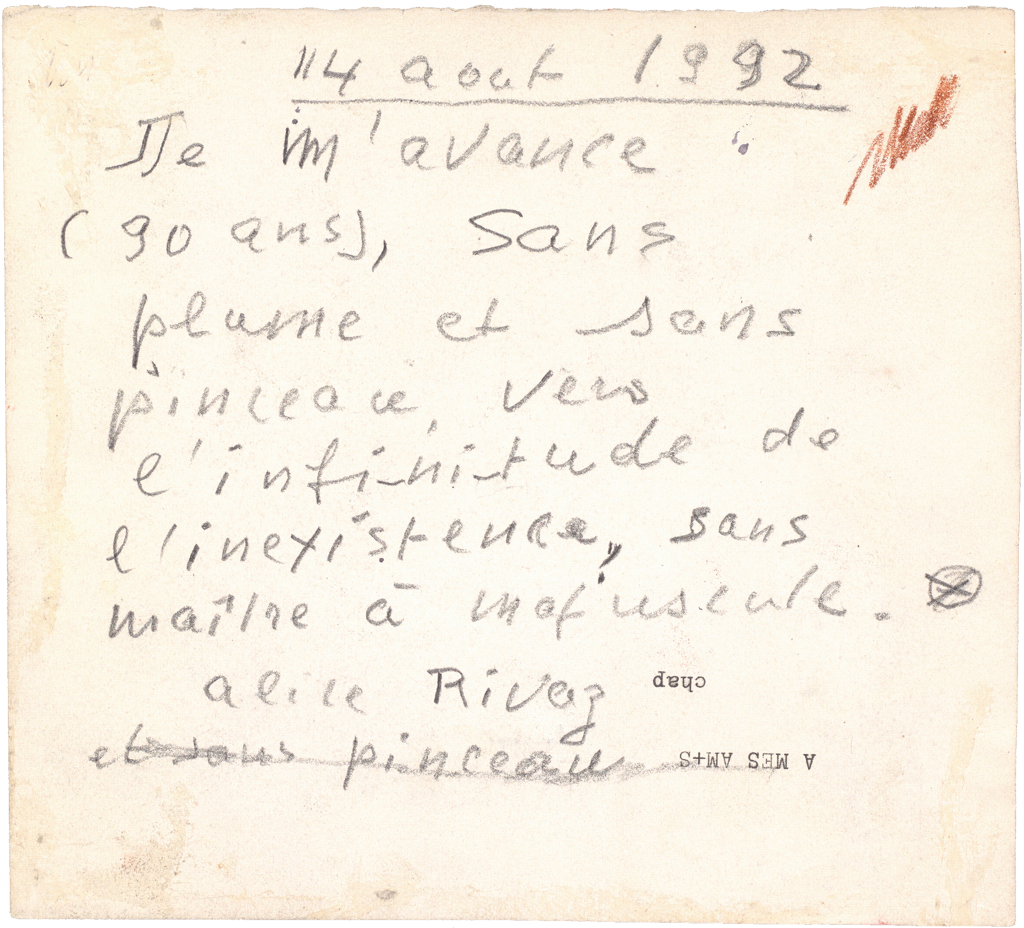 14 août 1992
Je m'avance
(90 ans), Sans
plume et sans
pinceau, vers
l'infinitude de
l'inexistence, sans
maître à majuscule.
alice Rivaz
chap
et sans pinceau
A MES AM+S